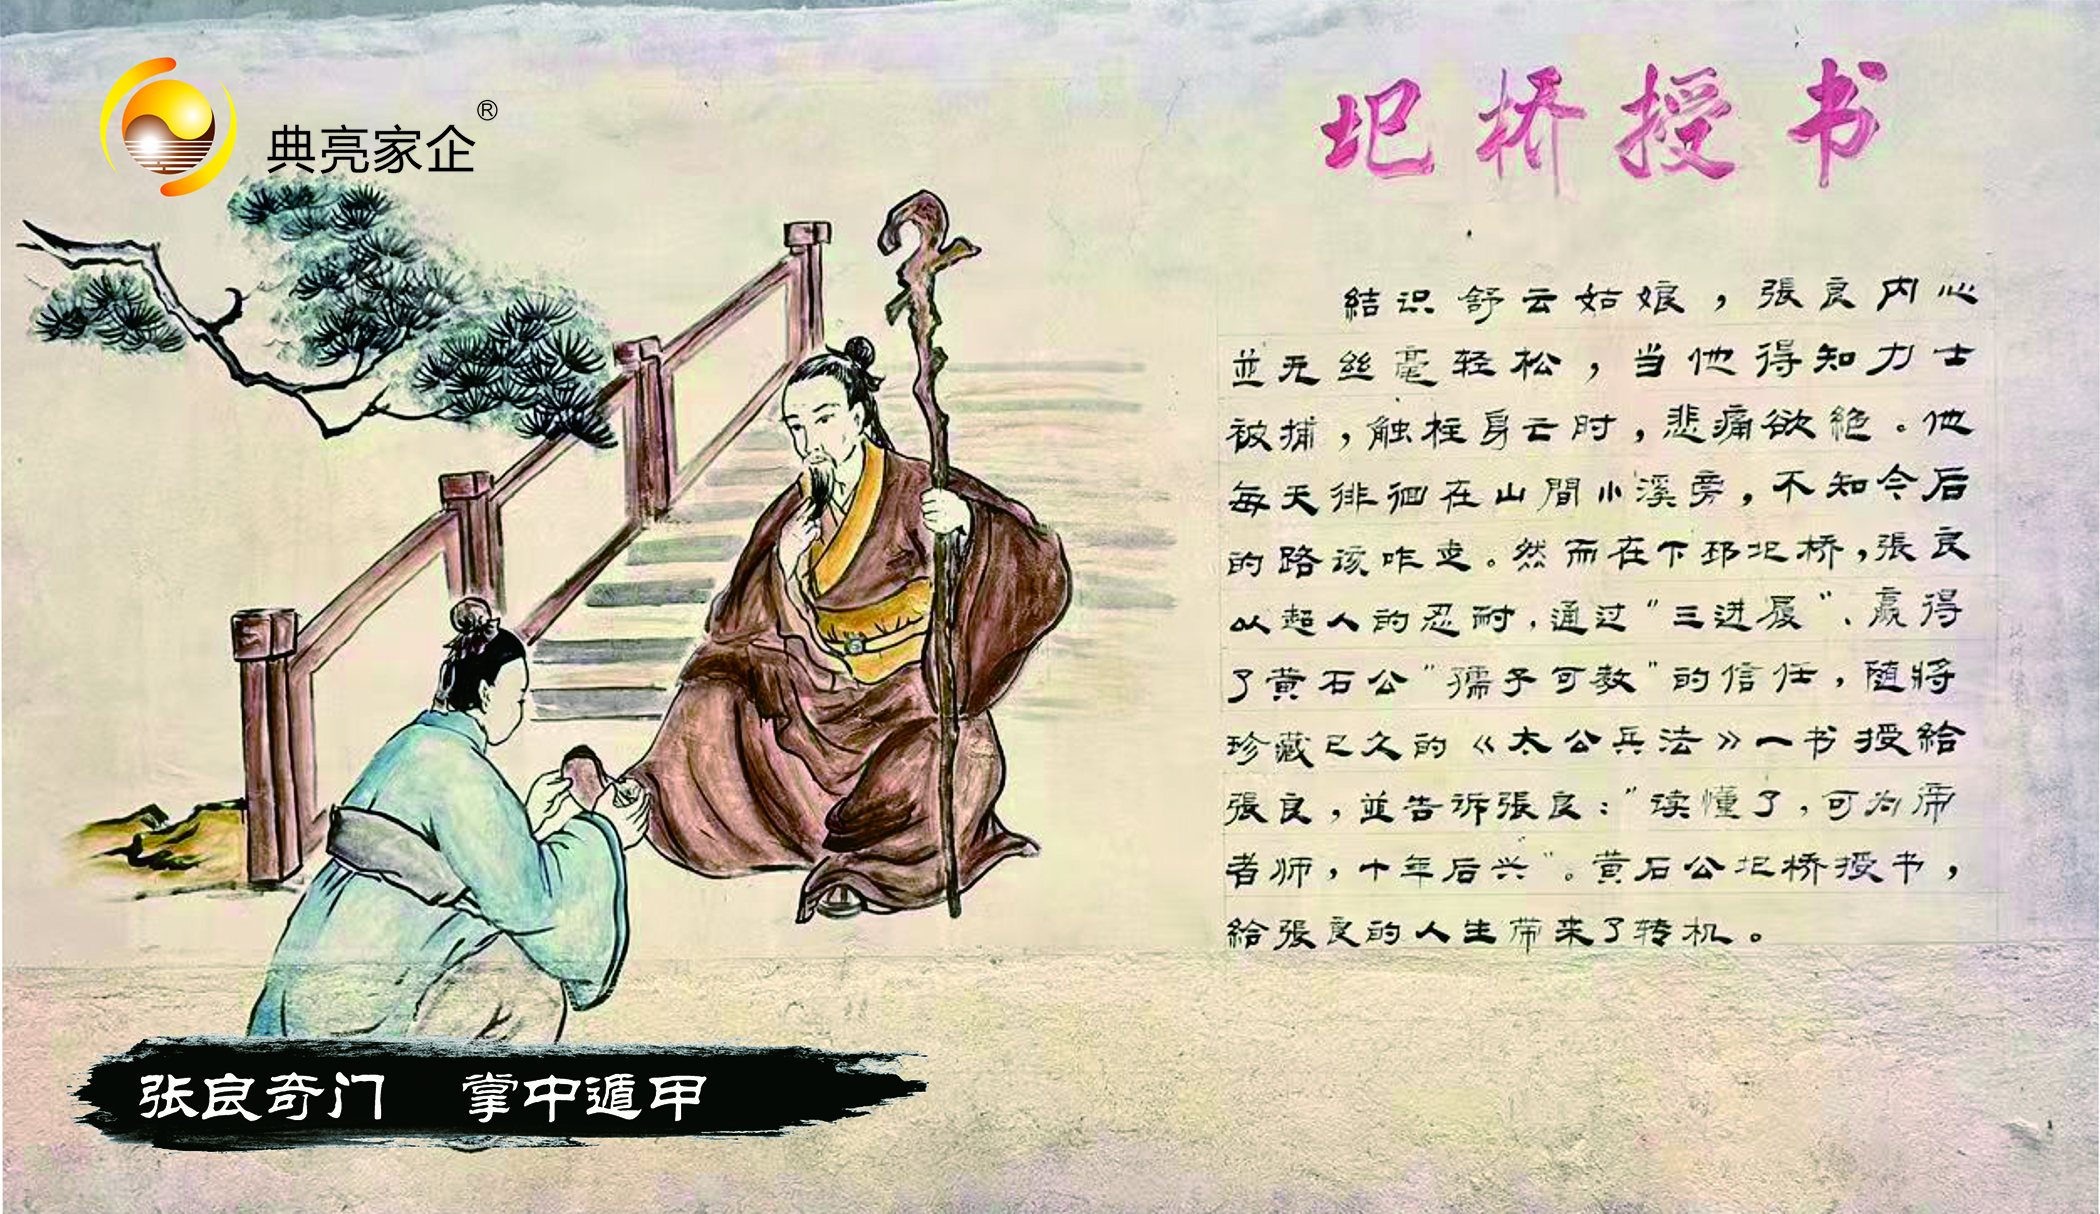 典亮家企®
圯桥授书
結识舒云姑娘，張良内心
並无丝毫轻松，当他得知力士
被捕，触柱身亡时，悲痛欲绝。他
每天徘徊在山間小溪旁，不知今后
的路该咋走。然而在下邳圯桥，張良
以超人的忍耐，通过“三进履”、赢得
了黄石公“孺子可教”的信任，随將
珍藏已久的《太公兵法》一书授給
張良，並告诉張良：“读懂了，可为帝
者师，十年后兴”。黄石公圯桥授书，
給張良的人生带来了转机。
张良奇门 掌中遁甲